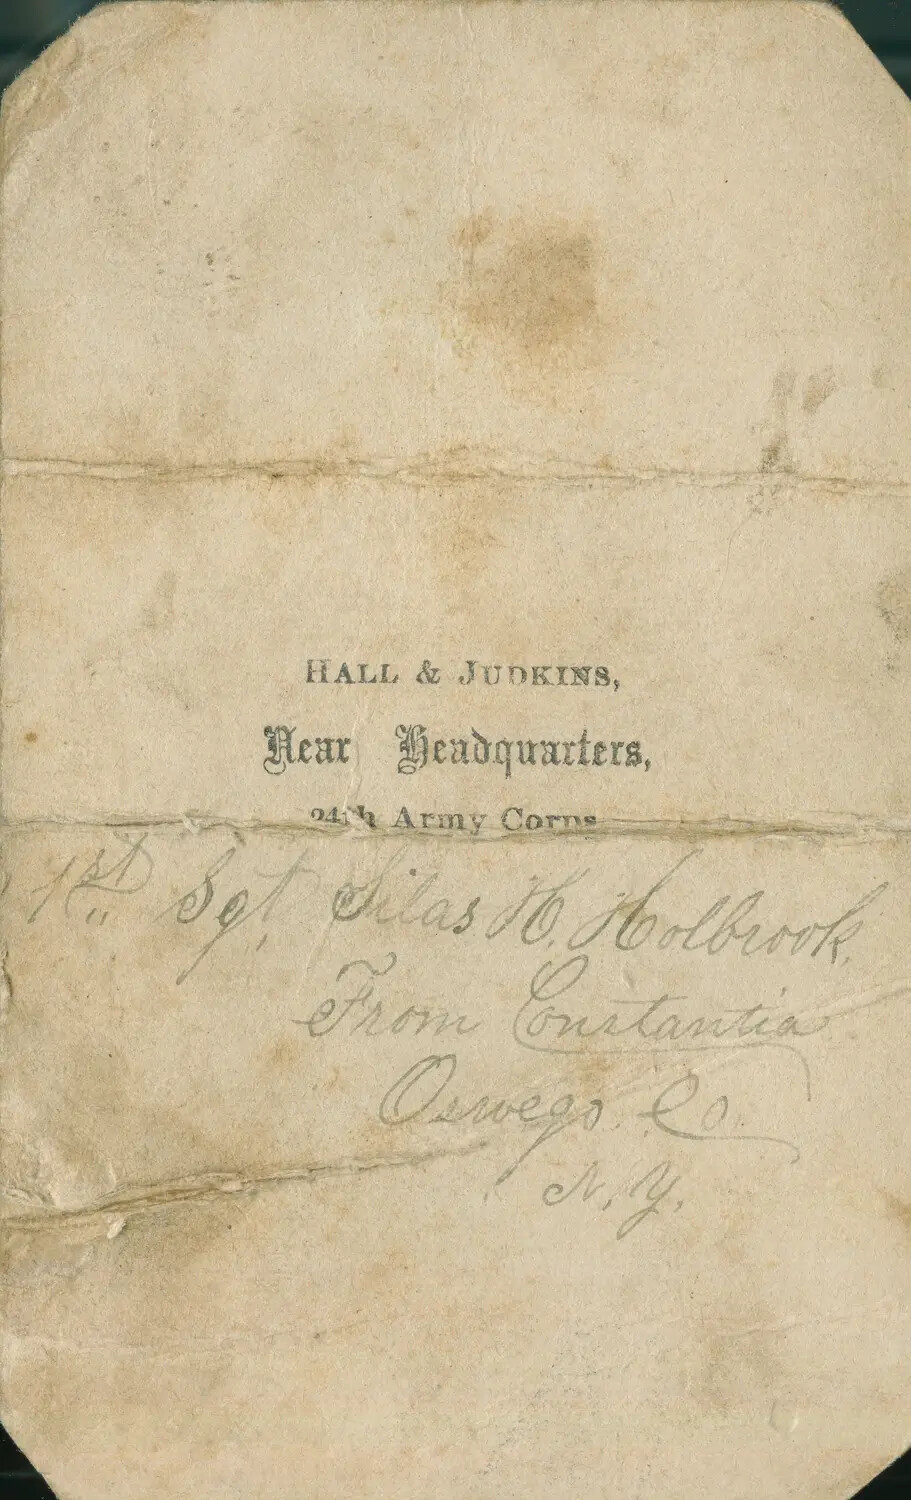 HALL & JUDKINS,
Near Headquarters,
24th Army Corps
1st Sgt, Silas H. Holbrook.
From Constantia
Oswego Co.
N. Y.